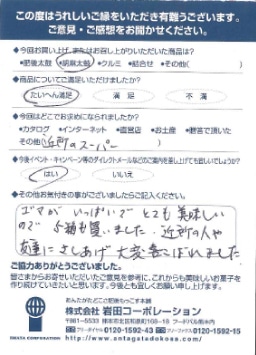 この度はうれしいご縁をいただき有難うございます。
ご意見・ご感想をお聞かせください。
◆今回お買い上げ、またはお召し上がりいただいた商品は?
・肥後太鼓 ・胡麻太鼓 ・クルミ ・詰合せ ・その他( )
◆商品についてご満足いただけましたか?
たいへん満足 満足 不満
◆今回はどこでお求めになられましたか?
・カタログ ・インターネット ・直営店 ・お土産 ・贈答で頂いた
その他(近所のスーパー )
◆今後イベント・キャンペーン等のダイレクトメールなどのご案内を差し上げても宜しいでしょうか?
はい いいえ
◆その他お気付きの事がございましたらご記入ください。
ゴマがいっぱいでとても美味しい
ので5箱も買いました。近所の人や
友達にさしあげ大変喜こばれました
ご協力ありがとうございました。
皆さまからお寄せいただいたご意見を参考に、これからも美味しいお菓子を
作り続けていきたいと思います。今後とも宜しくお願い申し上げます。
あんたがたどこの肥後もっこす本舗
株式会社 岩田コーポレーション
IWATA CORPORATION
0120-1592-43
0120-1592-15
http://www.antagatadokosa.com/